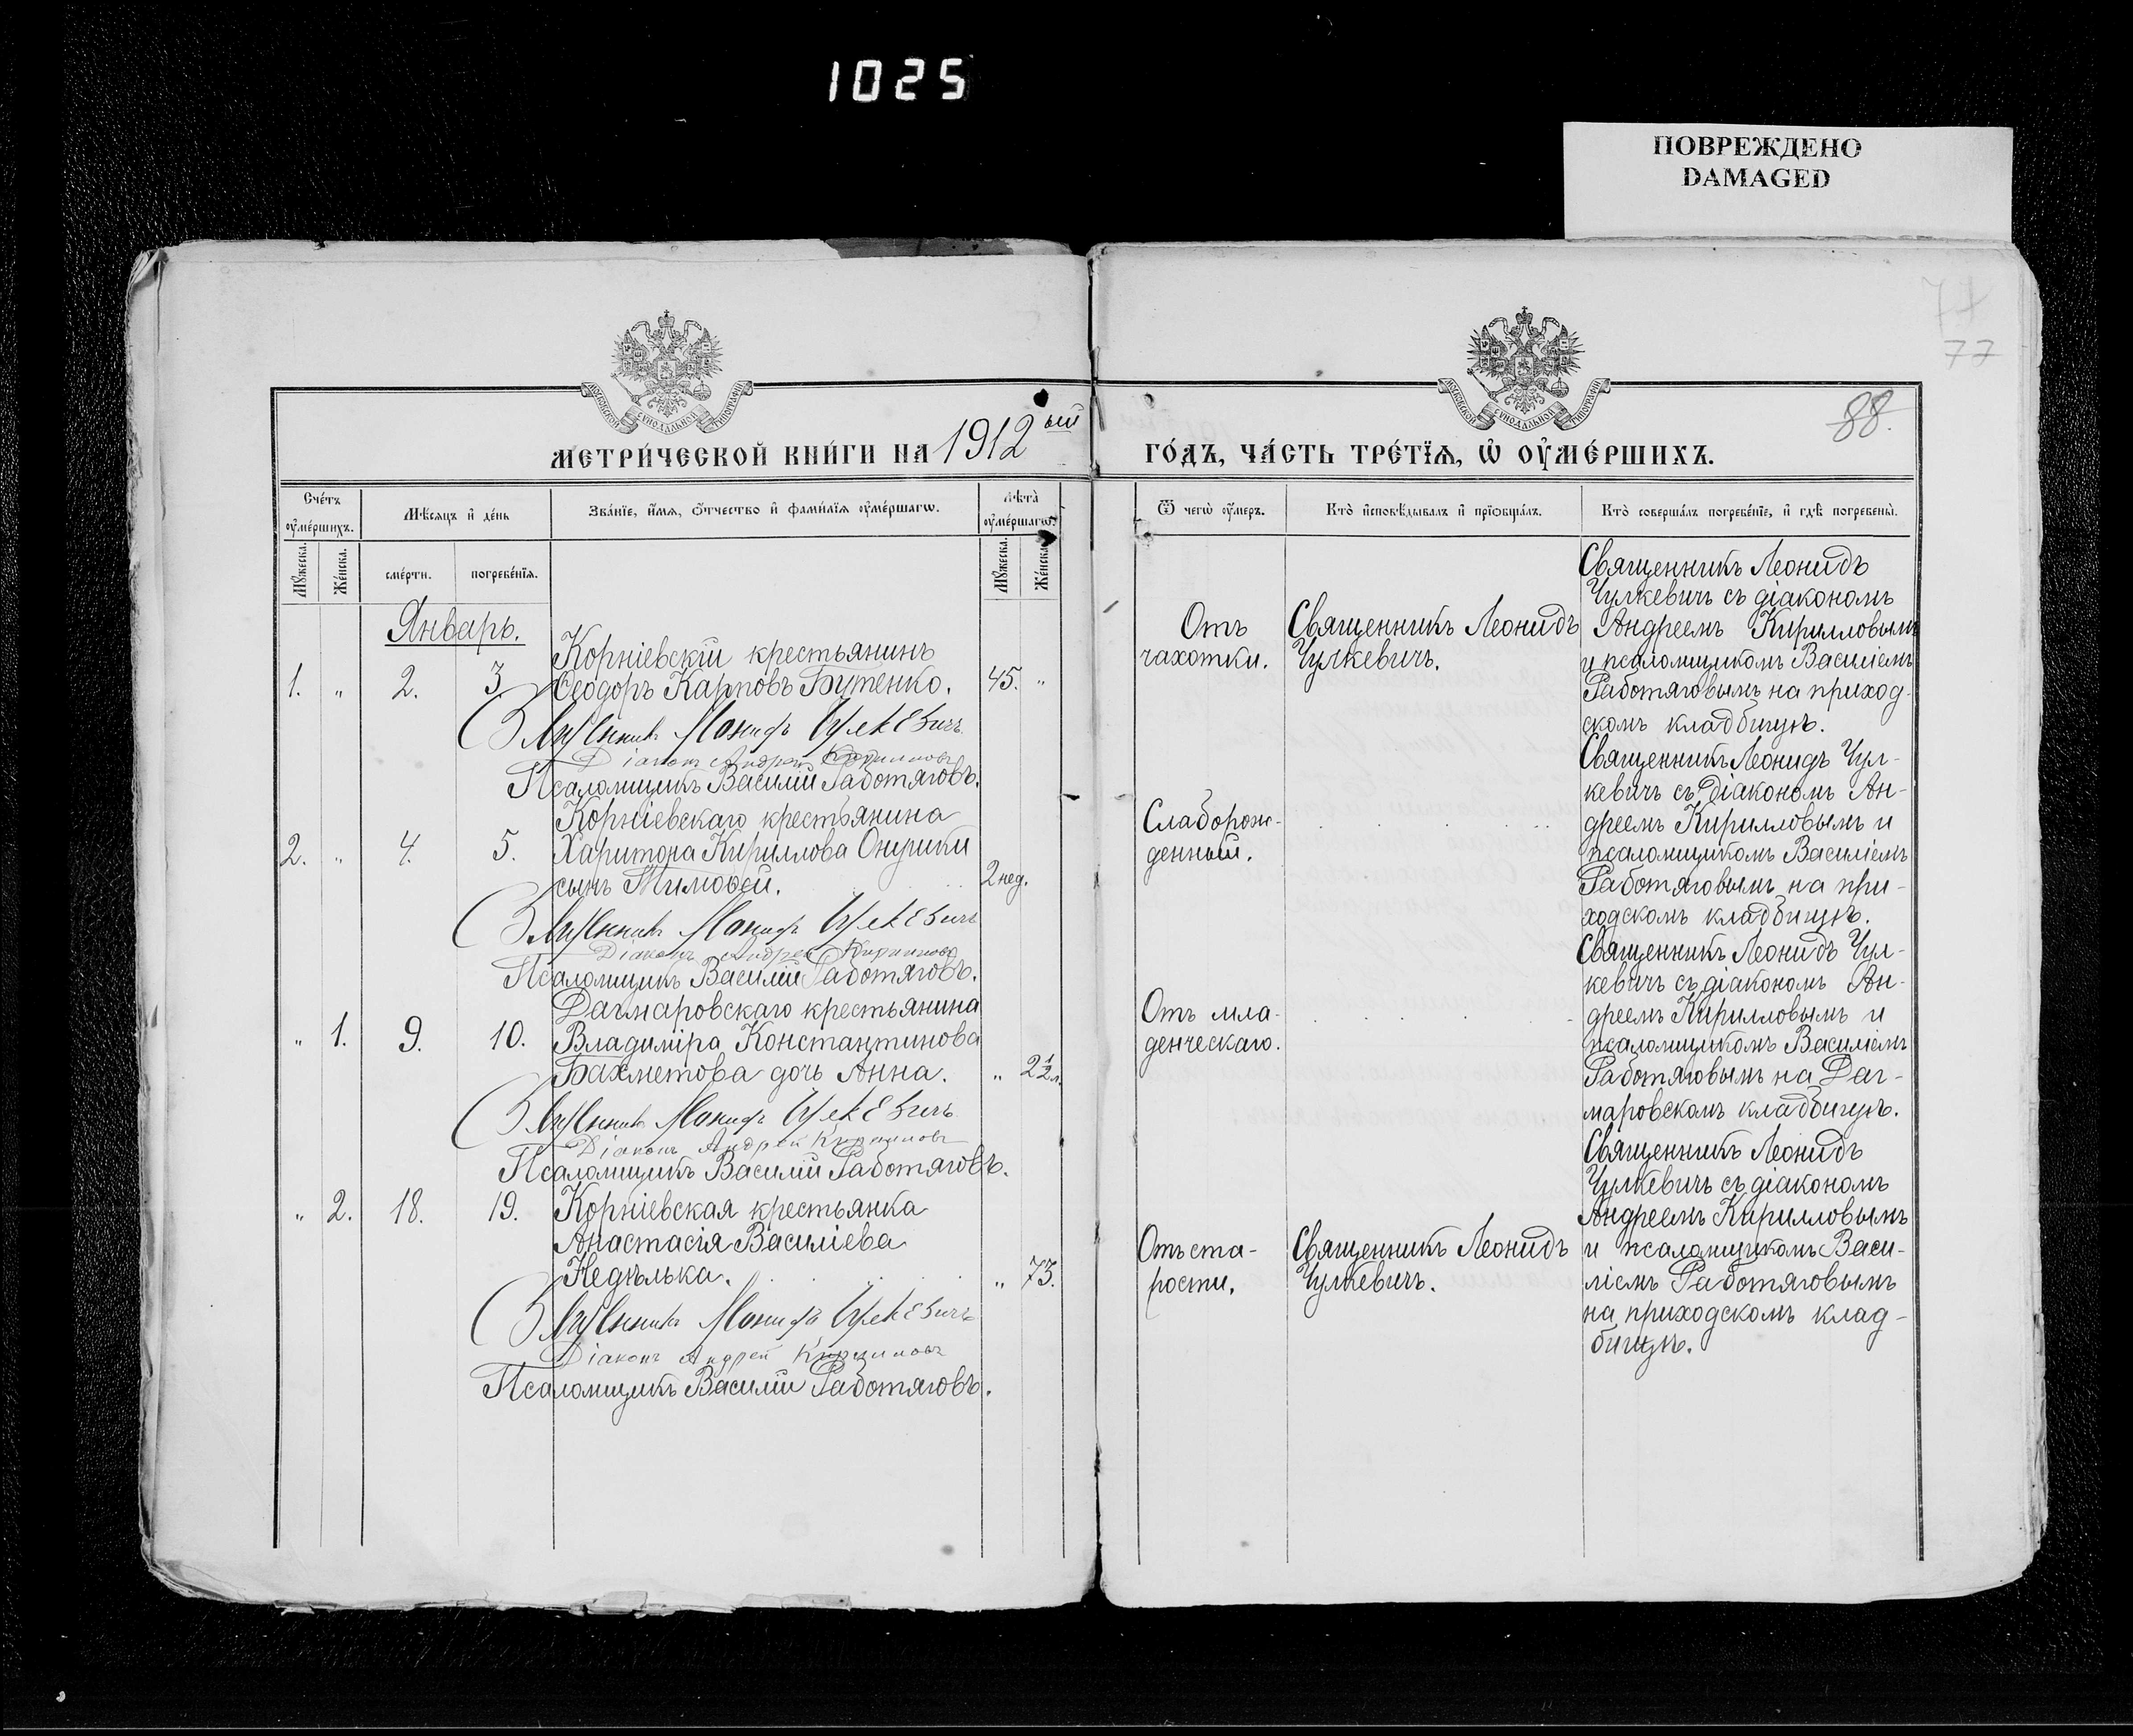 1025
ПОВРЕЖДЕНО
DAMAGED
77
88.
МОСКОВСКОЙ СУНОДАЛЬНОЙ ТИПОГРАФІИ
МОСКОВСКОЙ СУНОДАЛЬНОЙ ТИПОГРАФІИ
МЕТРИ́ЧЕСКОЙ КНИ́ГИ НА 1912ый
ГО́ДЪ, ЧА́СТЬ ТРЕ́ТЇѦ, Ѡ҆ ОУ҆МЕ́РШИХЪ.
Сче́тъ оу҆ме́ршихъ.
Мѣ́сяцъ и҆ де́нь
Зва́нїе, и҆́мѧ, ѻ҆́тчество и҆ фами́лїѧ оу҆ме́ршагѡ.
Лѣта̀ оу҆ме́ршагѡ.
Ѿ чегѡ̀ оу҆́меръ.
Кто̀ и҆сповѣ́дывалъ и҆ прїѡбща́лъ.
Кто̀ соверша́лъ погребе́нїе, и҆ гдѣ̀ погребены̀.
Мꙋ́жеска.
Же́нска.
сме́рти.
погребе́нїѧ.
Мꙋ́жеска.
Же́нска.
Январь.
Корніевскій крестьянинъ
1. " 2. 3 Ѳеодоръ Карповъ Бутенко. 45. "
Священникъ Леонидъ Чулкевичъ
Діаконъ Андрей Кирилловъ
Псаломщикъ Василій Работяговъ.
Отъ
чахотки.
Священникъ Леонидъ
Чулкевичъ.
Священникъ Леонидъ
Чулкевичъ съ діакономъ
Андреемъ Кирилловымъ
и псаломщикомъ Василіемъ
Работяговымъ на приход-
скомъ кладбищѣ.
Корніевскаго крестьянина
2. " 4. 5. Харитона Кириллова Онушки
сынъ Тимоѳей. 2 нед.
Священникъ Леонидъ Чулкевичъ
Діаконъ Андрей Кирилловъ
Псаломщикъ Василій Работяговъ.
Слаборож-
денный.
Священникъ Леонидъ Чул-
кевичъ съ діакономъ Ан-
дреемъ Кирилловымъ и
псаломщикомъ Василіемъ
Работяговымъ на при-
ходскомъ кладбищѣ.
Дагмаровскаго крестьянина
" 1. 9. 10. Владиміра Константинова
Бахметова дочь Анна. " 2½ л.
Священникъ Леонидъ Чулкевичъ
Діаконъ Андрей Кирилловъ
Псаломщикъ Василій Работяговъ.
Отъ мла-
денческаго.
Священникъ Леонидъ Чул-
кевичъ съ діакономъ Ан-
дреемъ Кирилловымъ и
псаломщикомъ Василіемъ
Работяговымъ на Даг-
маровскомъ кладбищѣ.
" 2. 18. 19. Корніевская крестьянка
Анастасія Василіева
Недѣлька. " 73.
Священникъ Леонидъ Чулкевичъ
Діаконъ Андрей Кирилловъ
Псаломщикъ Василій Работяговъ.
Отъ ста-
рости.
Священникъ Леонидъ
Чулкевичъ.
Священникъ Леонидъ
Чулкевичъ съ діакономъ
Андреемъ Кирилловымъ
и псаломщикомъ Васи-
ліемъ Работяговымъ
на приходскомъ клад-
бищѣ.